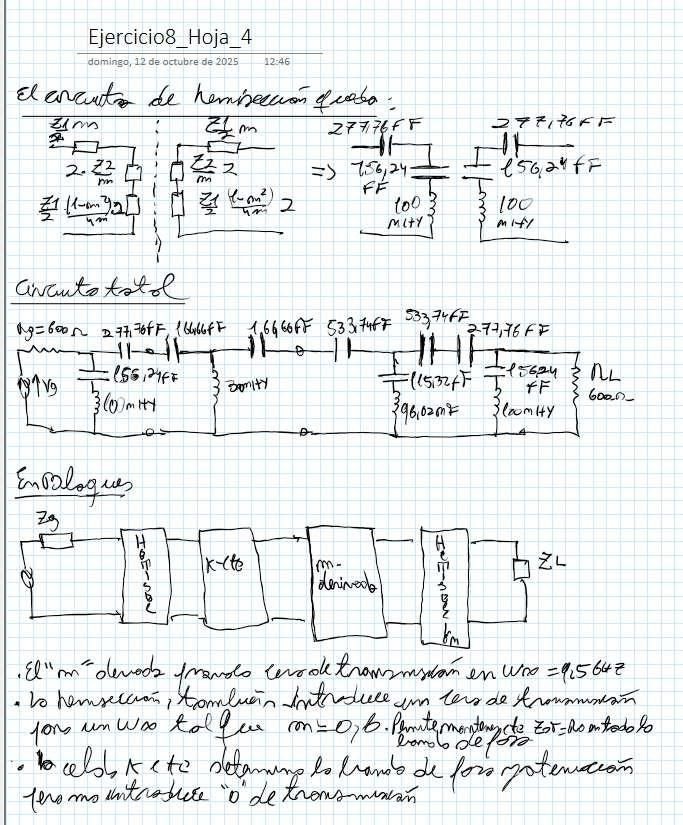 Ejercicio8_Hoja_4
domingo, 12 de octubre de 2025 12:46
El circuito de hemisección queda:
Z1/2 m Z1/2 m 277,76 fF 277,76 fF
2. Z2/m Z2/m 2 => 156,24 fF 156,24 fF
Z1/2 (1-m²)/4m 2 100 mHy 100 mHy
Circuito total
Rg=600Ω 277,76fF 1,666fF 1,666fF 533,74fF 533,74fF 277,76 fF
Vg 156,24fF 30mHy 115,32fF 15624 fF RL
100mHy 96,02mF 100mHy 600Ω
En Bloques
Zg
K-cte m-derivada ZL
. El "m" derivada cero de transmisión en W∞ = 9,5647
. La hemisección, también introduce un cero de transmisión
para un W∞ tal que m=0,6. Permite mantener cte = Ro en toda la
banda de paso
. La celda K cte determina la banda de paso y atenuación
pero no introduce "0" de transmisión